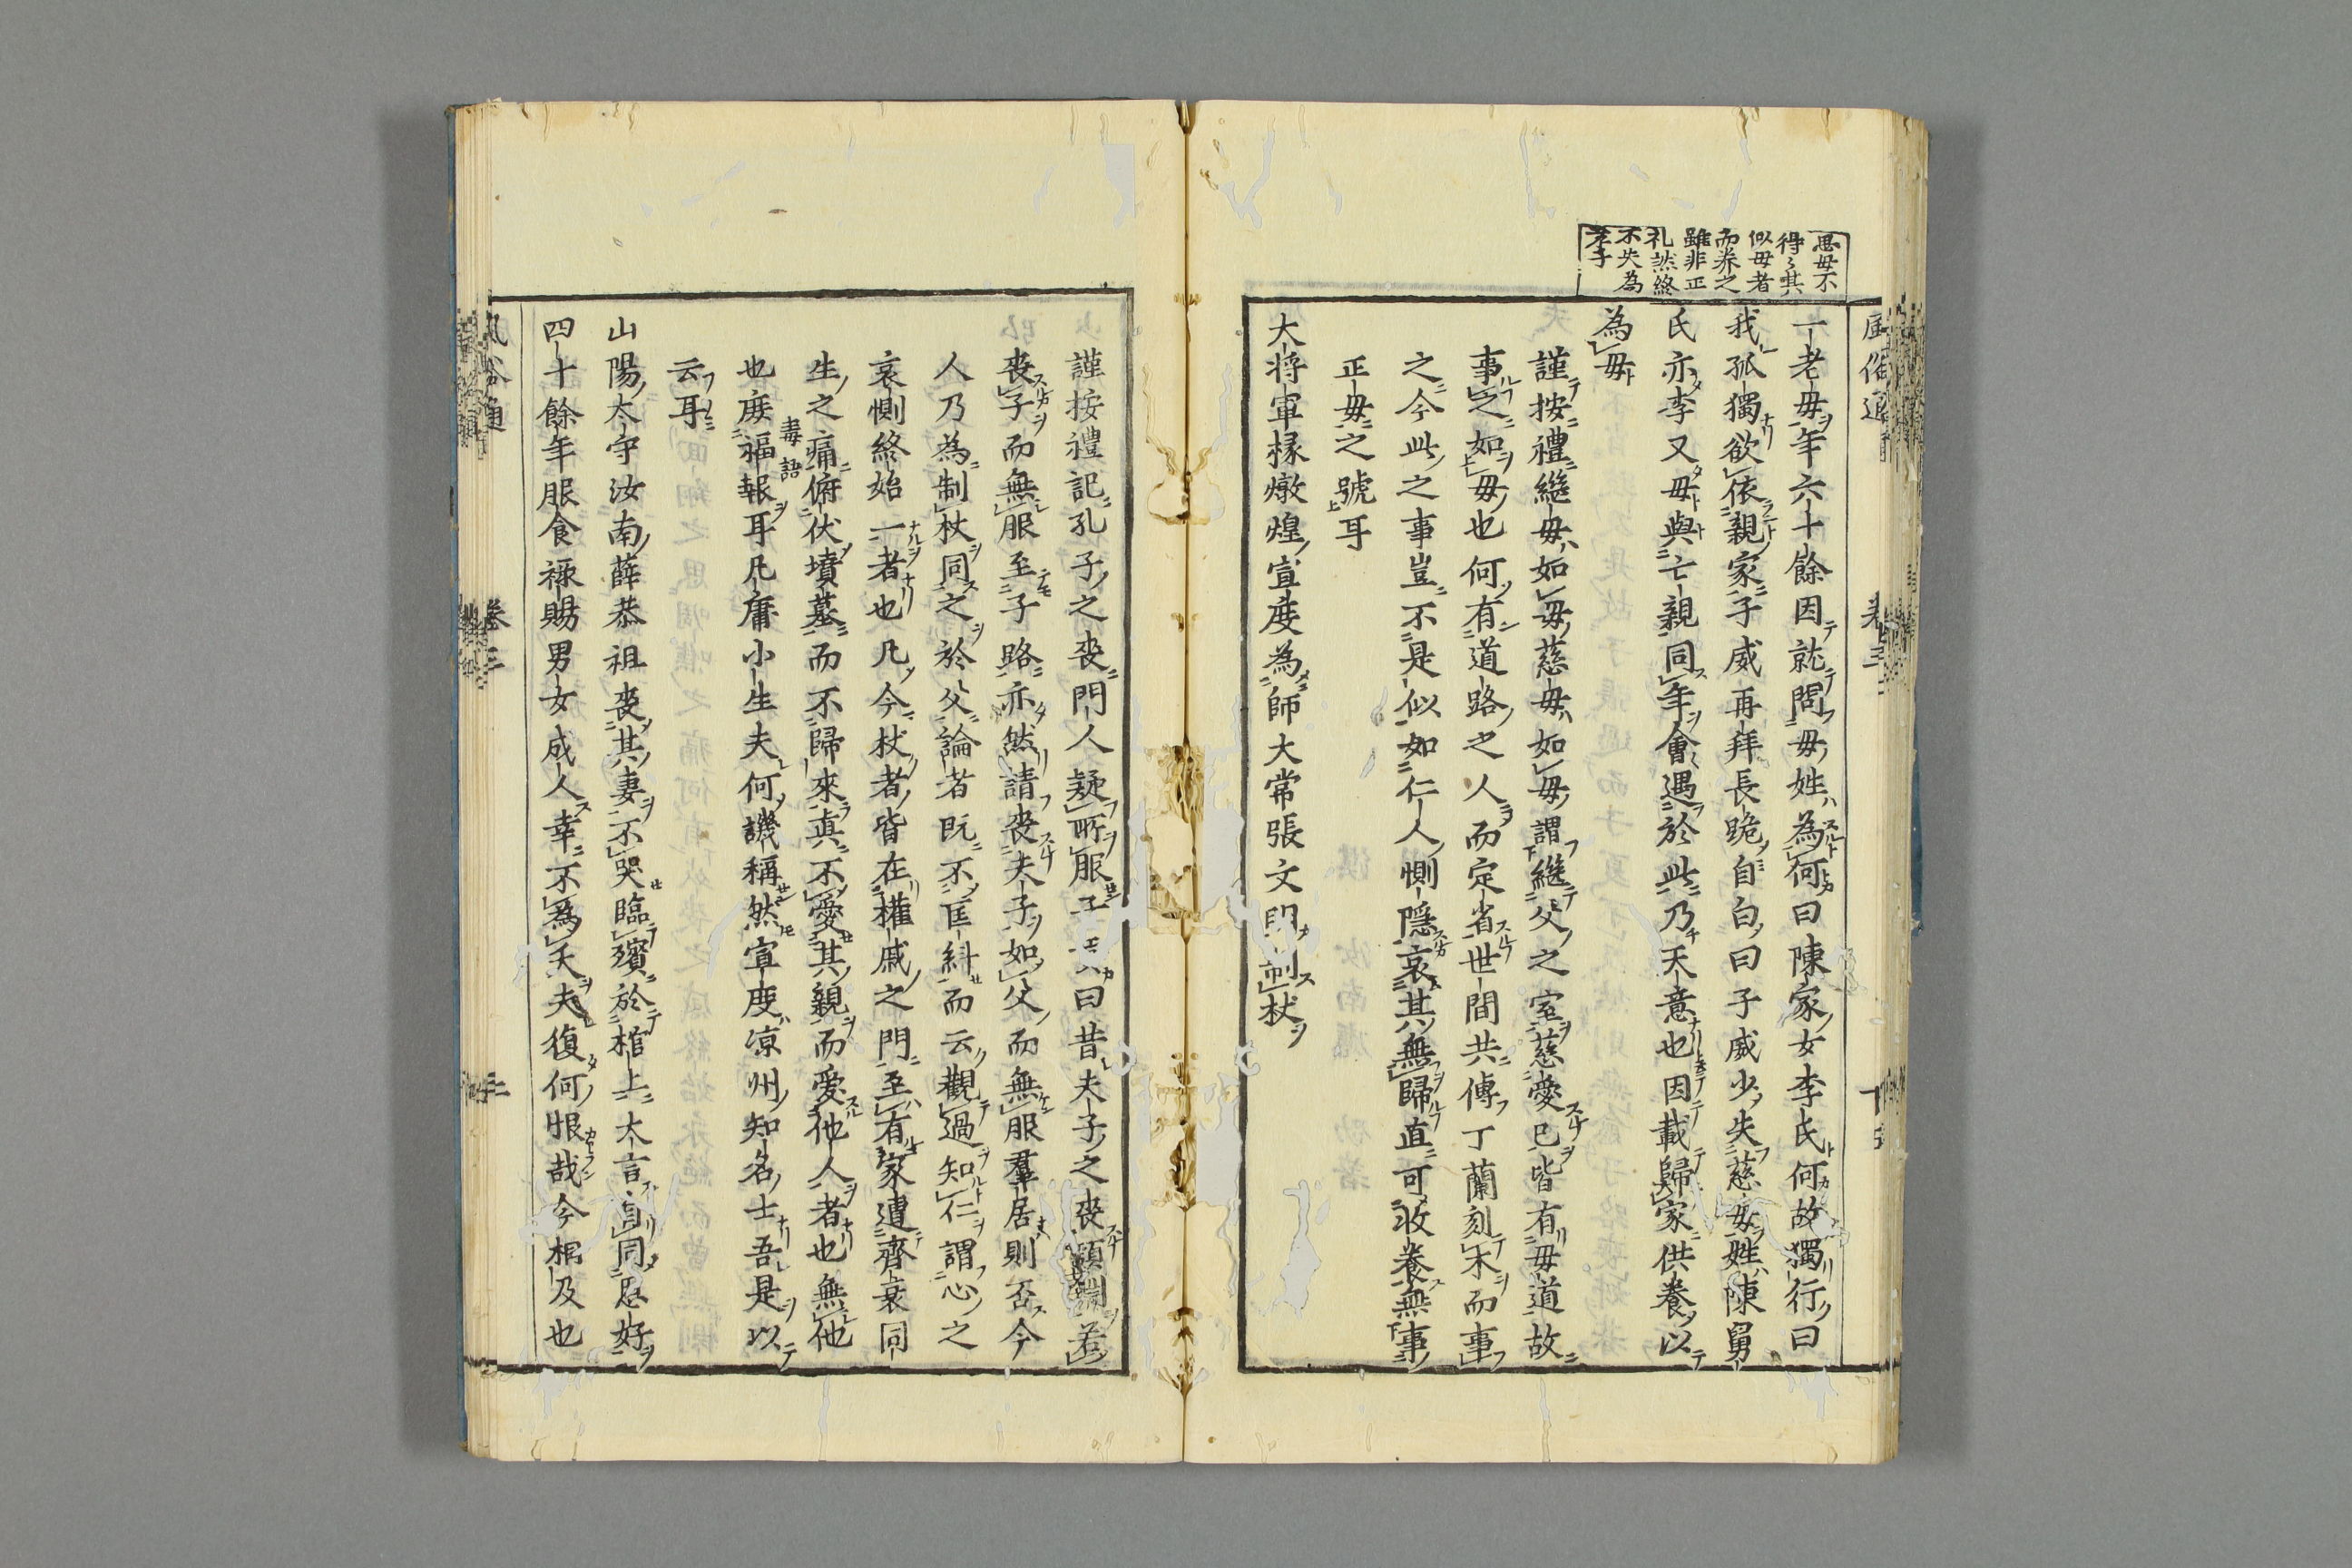 思母不
得〻其
似母者
而养之
雖非正
礼然終
不失為
孝子
風俗通
卷三
一老母年六十餘因就問母姓為何曰陳家女李氏何故獨行曰
我孤獨欲依親家子威再拜長跪自白曰子威少失慈母姓陳舅
氏亦李又母與亡親同年會遇於此乃天意也因載歸家供養以
為母
謹按禮繼母如母慈母如母謂繼父之室慈愛已皆有母道故
事之如母也何有道路之人而定省世間共傳丁蘭刻木而事
之今此之事豈不是似如仁人惻隱哀其無歸直可收養無事
正母之號耳
大將軍掾燉煌宣度為師大常張文明制杖
謹按禮記孔子之喪門人疑所服子貢曰昔夫子之喪顏淵若
喪子而無服至子路亦然請喪夫子如父而無服羣居則否今
人乃為制杖同之於父論者既不匡糾而云觀過知仁謂心之
哀惻終始一者也凡今杖者皆在權戚之門至有家遭齊衰同
生之痛俯伏墳墓而不歸來真不愛其親而愛他人者也無他
也庶福報耳凡庸小生夫何譏稱然宣度凉州知名士吾是以
毒語
云耳
山陽太守汝南薛恭祖喪其妻不哭臨殯於棺上大言自同恩好
四十餘年服食祿賜男女成人幸不為夭夫復何恨哉今相及也
風俗通
卷三